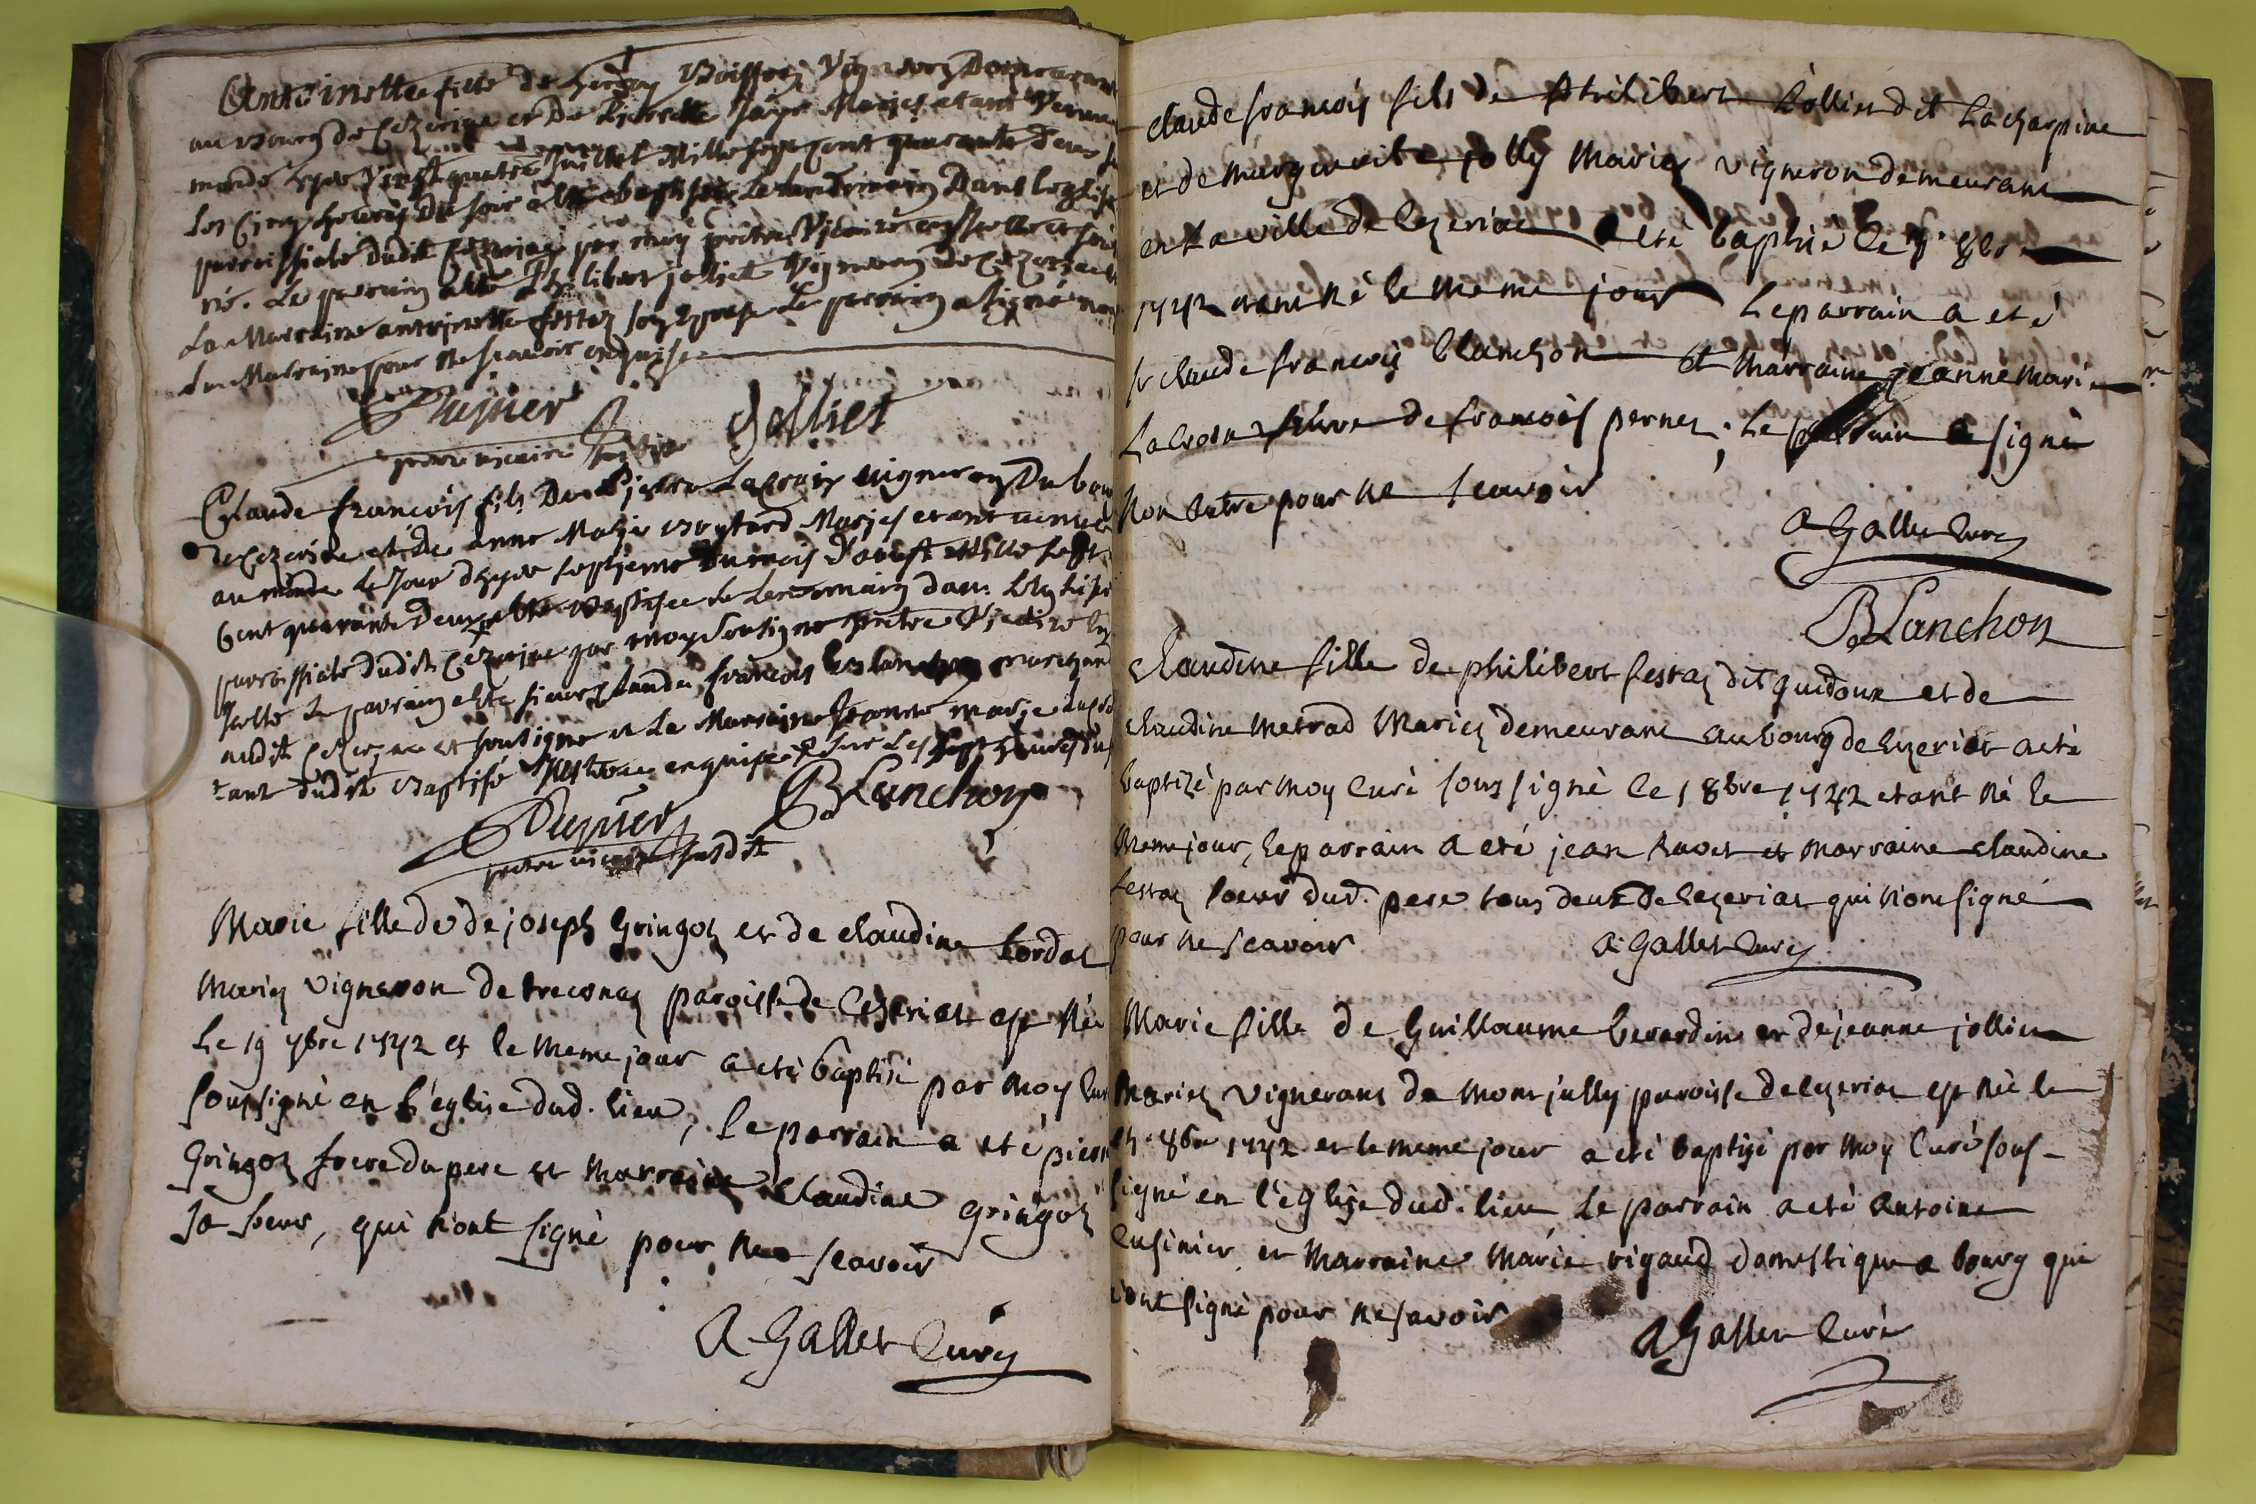 Antoinette fille de
au bourg de Cezeriae et De Pierrette Mariés etant Venue
monde hyer Vingt quatre Juillet Mille sept cent quarante Deux
les Cinq heures Du soir a été baptisée Le lendemain Dans leglise
parroissiale dudit par moy pretre Vicaire
né. Le parrain a été Philibert jolliet Vigneron de Cezeriae
La Marraine antoinette festaz son Epouse Le parrain a signé non
La Marraine pour ne scavoir enquise
Jolliet
pretre vicaire
Claude francois fils De Pierre Lacroix vigneron Du bourg
de Cezeriae et de anne Marie Mariés etant venu
au monde Le Jour d'hyer septieme Du mois D'aoust Mille sept
Cent quarante Deux a été Baptisé Le Lendemain dans L'eglise
parroissiale dudit par moy Soussigné pretre Vicaire
Le parrain a été sieur Claude francois Blanchon marchand
audit Cezeriae et soussigné et La Marraine Jeanne marie
tant dudit Baptisé enquise sur Les sept heures du
Blanchon
pretre vicaire susdit
Marie fille de de joseph Gringoz et de claudine bordat
Mariez vigneron de treconaz paroisse de Cezeriat est Née
Le 19 7bre 1742 et le meme jour a eté baptisé par moy Curé
soussigné en l'eglise dud. lieu, le parrain a eté pierre
Gringoz frere du pere et Marraine Claudine Gringoz
sa soeur, qui n'ont signé pour ne scavoir
A Gallet Curé
claude francois fils de Philibert Jollier dit Lacharpine
et de marguerite jolly Mariez vigneron demeurant
en La ville de Cezeriac a eté baptisé le 8bre
1742 etant né le meme jour Le parrain a eté
sr claude francois blanchon et Marraine jeanne Marie
Lacroix de francois pernet, Le parrain a signé
Non autre pour ne scavoir
A Gallet Curé
Blanchon
Claudine fille de philibert festaz dit guidoux et de
claudine metrad Mariez demeurant au bourg de Cezeriat a eté
baptizé par moy Curé soussigné le 1 8bre 1742 etant né le
meme jour, le parrain a eté jean et marraine claudine
festaz soeur dud. pere tous deux de Cezeriat qui n'ont signé
pour ne scavoir A Gallet Curé
Marie fille de Guillaume berardin et de jeanne jollier
Mariez vignerons de Montjully paroisse de Cezeriat est née le
8bre 1742 et le meme jour a eté baptisé par moy Curé sous-
signé en l'eglise dud. lieu Le parrain a eté Antoine
Cusinier et Marraine Marie rigaud domestique a bourg qui
n'ont signé pour ne savoir
A Gallet Curé